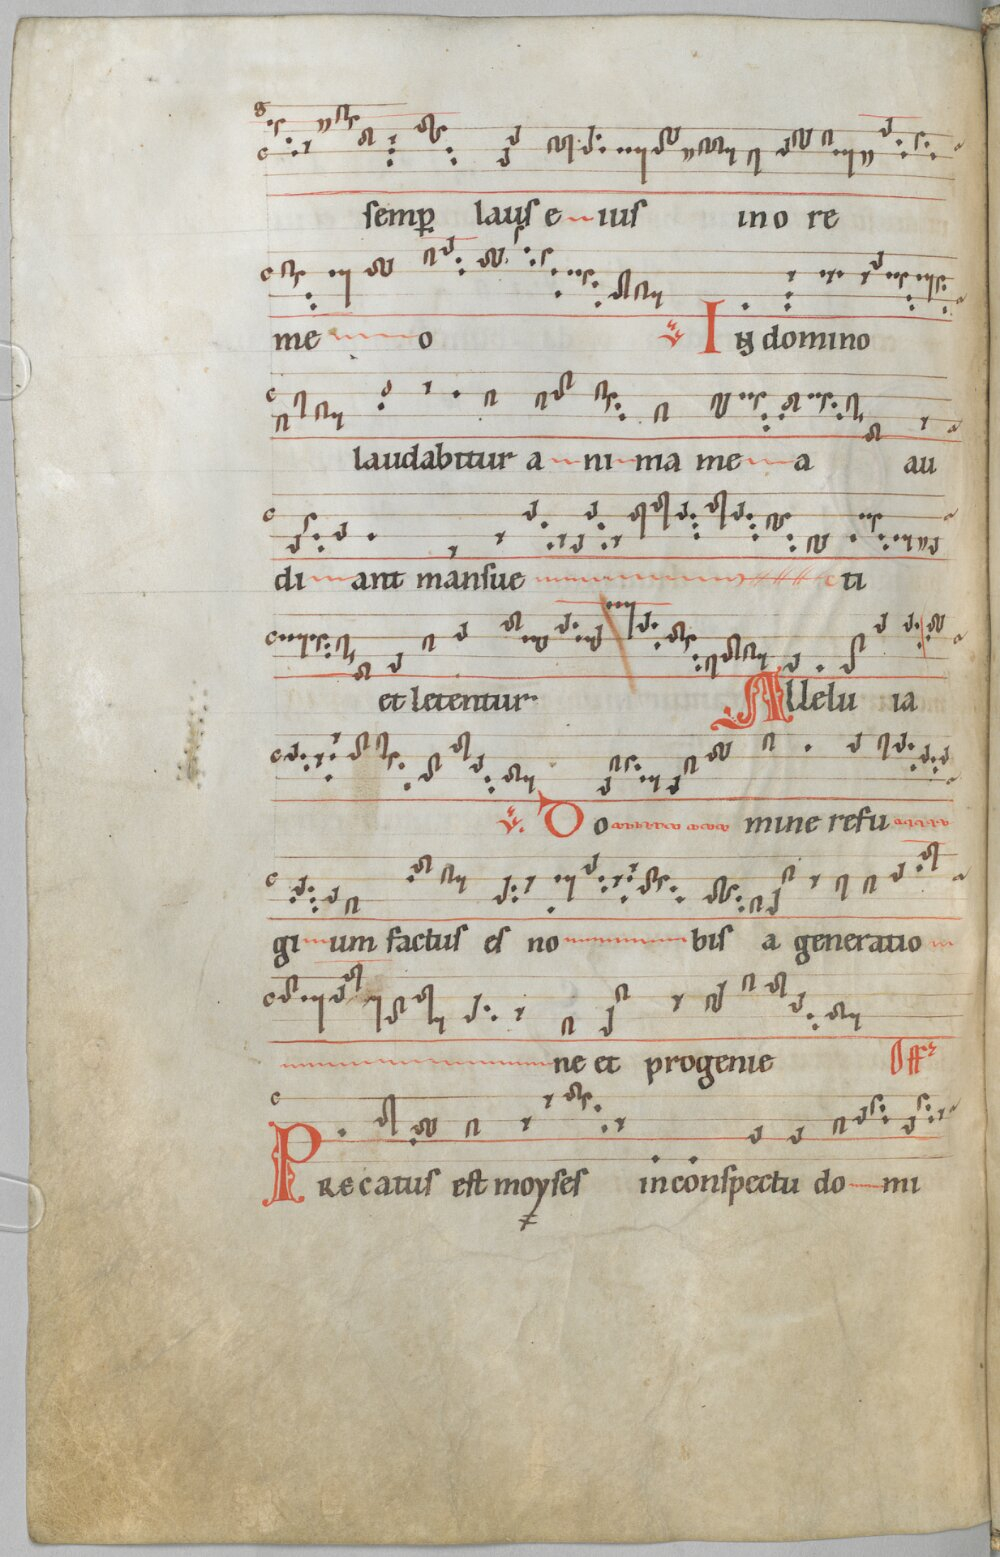 semꝑ laus e ius in o re
me o ℣ In domino
laudabitur a ni ma me a au
di ant mansue ti
et letentur Allelu ia
℣ Do mine refu
gi um factus es no bis a generatio
ne et progenie Off
Precatus est moyses in conspectu do mi